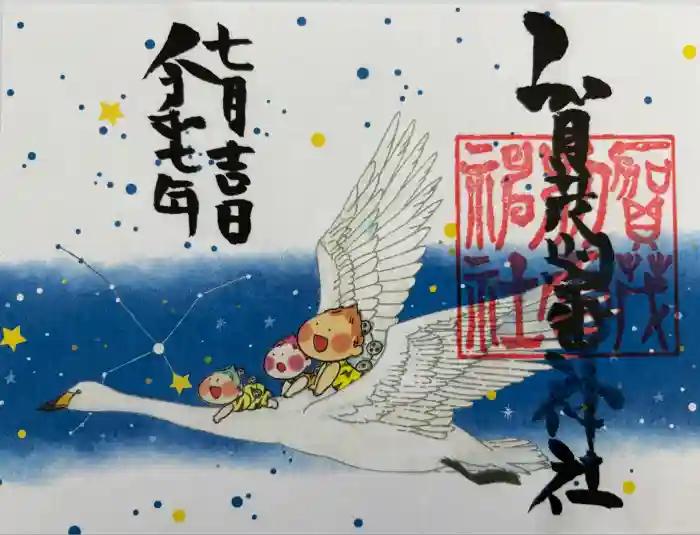 賀茂別雷神社
賀茂
別雷
神社
七月吉日
令和七年